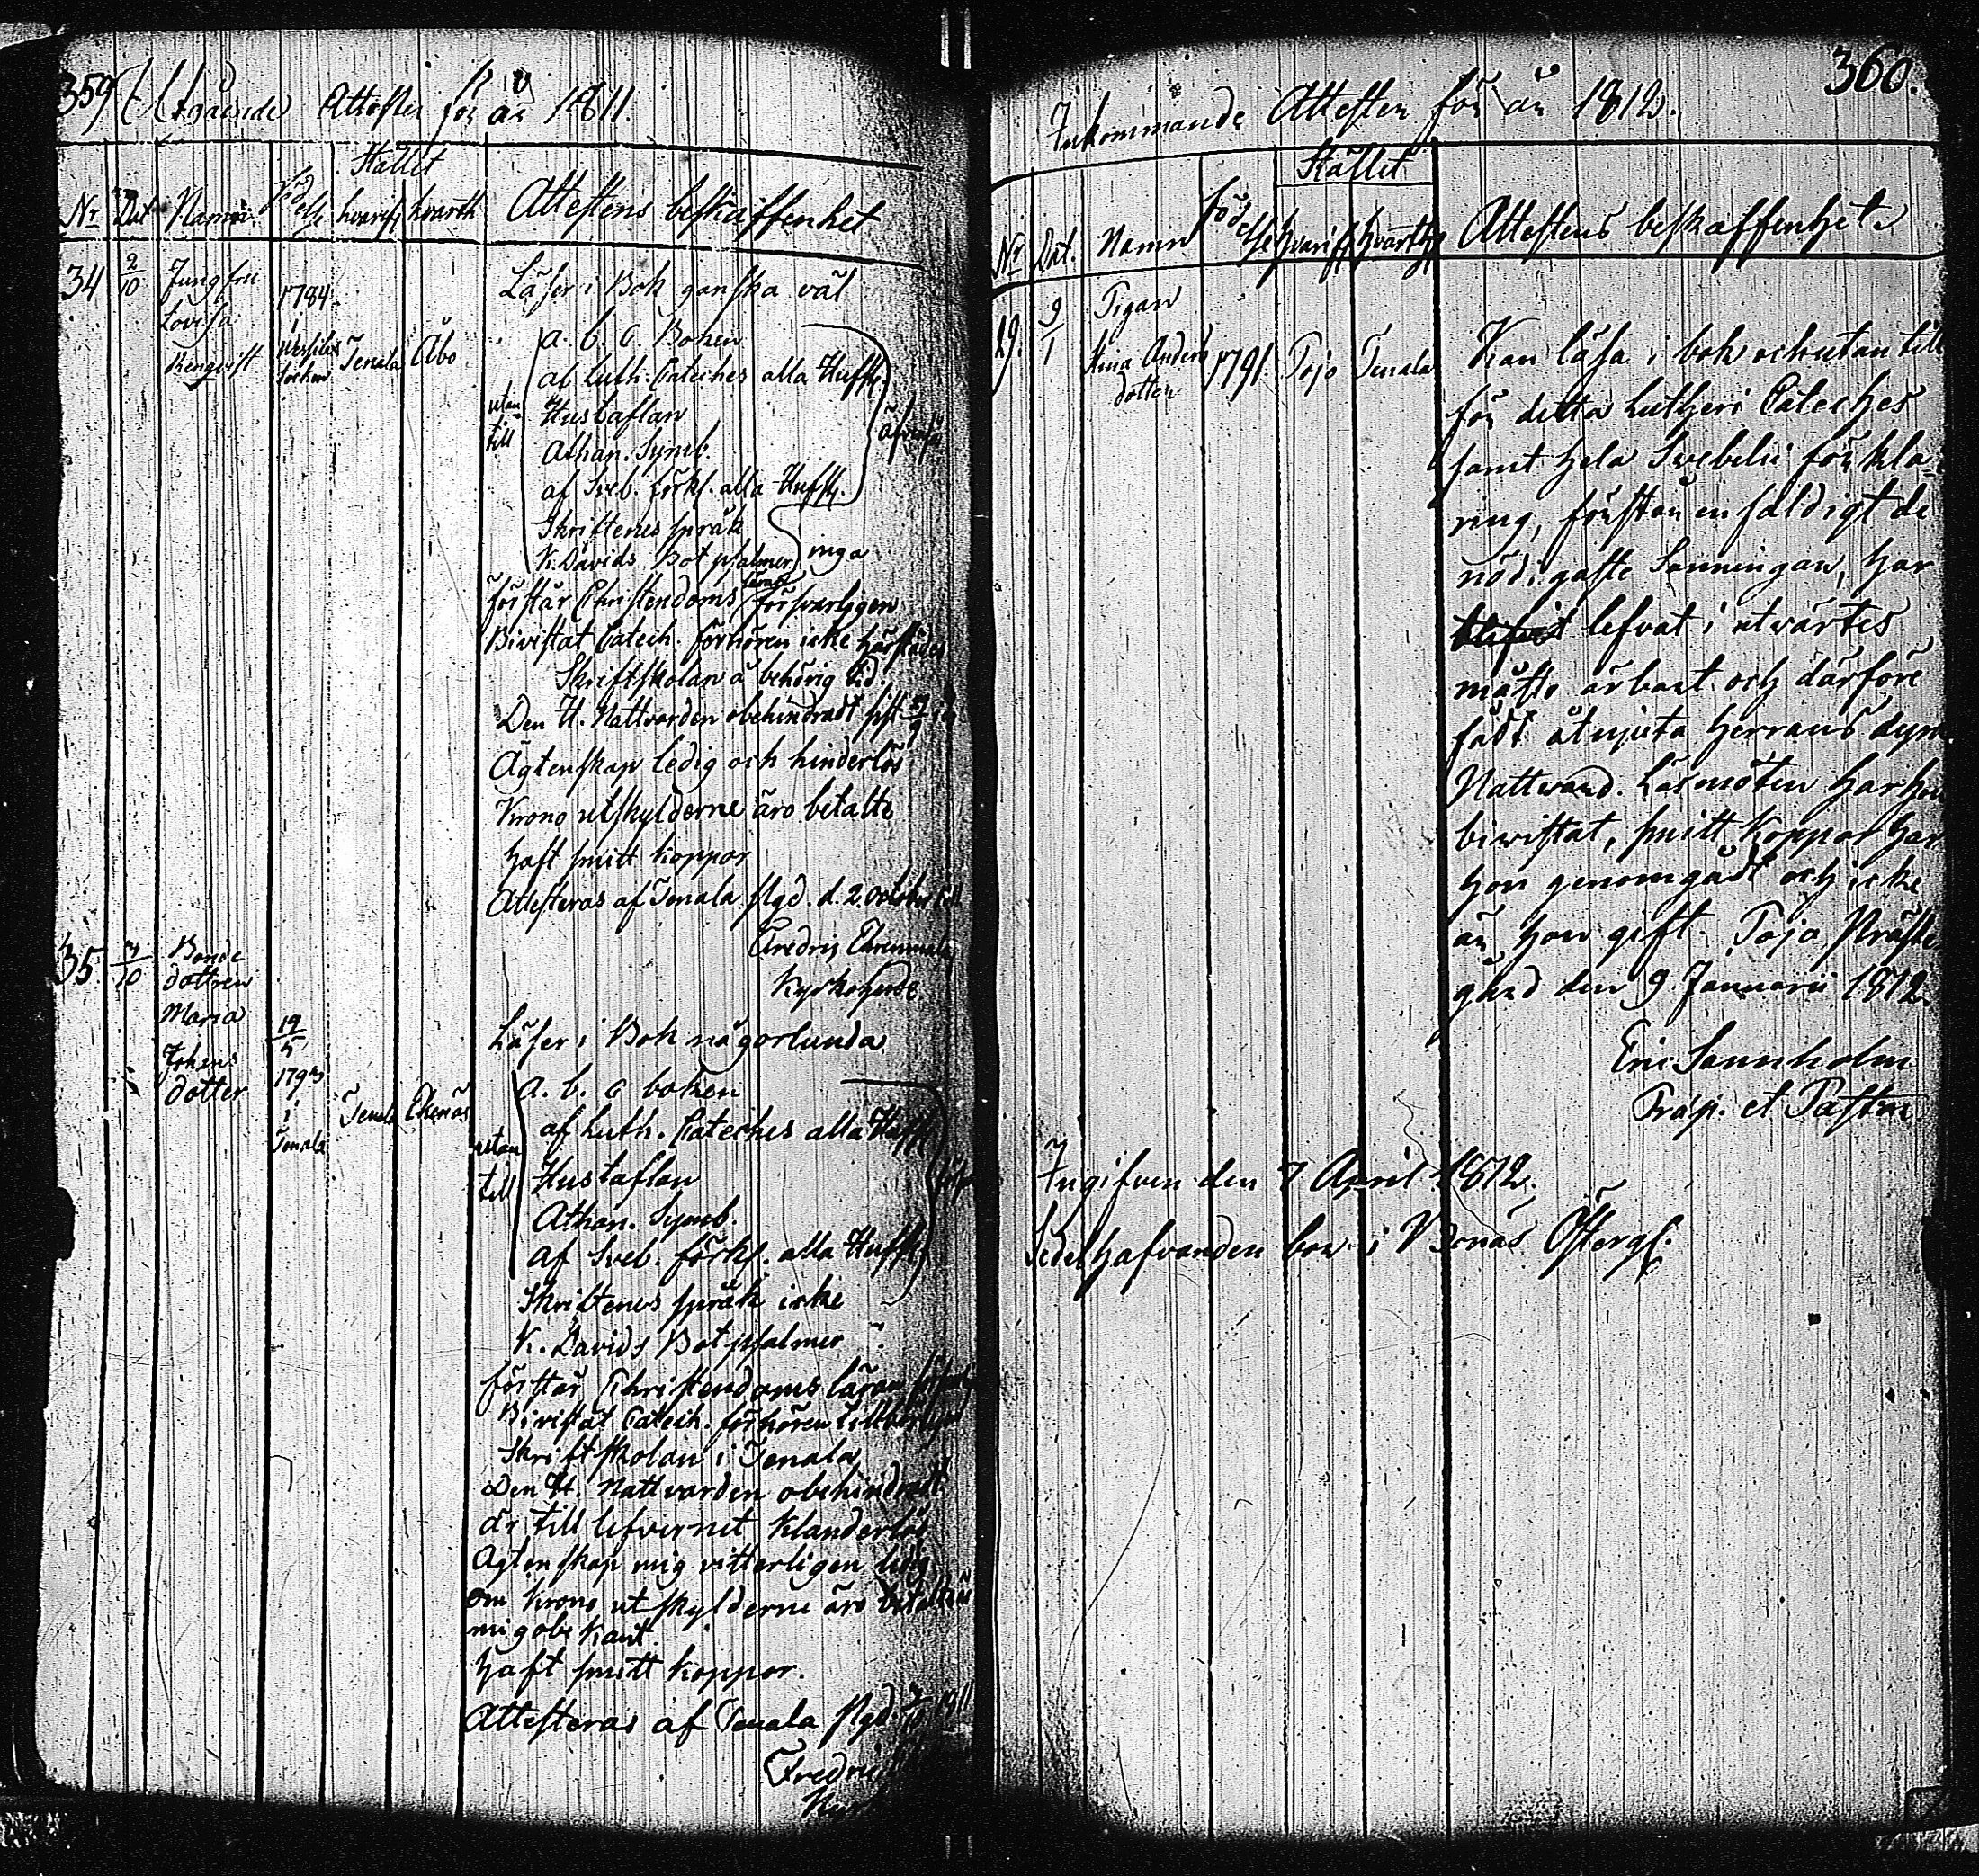 359
Utgående Attester för år 1811.
Stället
Nr Dat Namn Födelse hvarifr hvarth Attestens beskaffenhet
34 2/10 Jungfru
Lovisa
Renqvist
1784
i
socken
Tenala Åbo
Läser i Bok ganska väl
utan till
a. b. c. Boken
af Luth. Cateches alla Hufst.
Hustaflan
Athan. Symb.
af Sveb. förkl. alla Hufst.
Skriftenes språk
K. Davids Bot psalmer inga
förstår Christendoms läran försvarligen
Bivistat Catech. förhören icke härstädes
Skriftskolan å behörig tid
Den H. Nattvarden obehindradt sist
Ägtenskap ledig och hinderlös
Krono utskylderne äro betalte
haft smitt koppor
Attesteras af Tenala Pgd. d. 2 October
Kyrkoherde
35 3/10 Bonde
dottren
Maria
Johans
dotter
19/5
1793
i
Tenala
Tenala Ekenäs
Läser i Bok någorlunda
utan till
a. b. c boken
af Luth. Cateches alla Hufst
Hustaflan
Athan. Symb.
af Sveb. förkl. alla Hufst
Skriftenes språk icke
K. Davids Bot psalmer
förstår Christendoms läran
Bivistat Catech. förhören
Skriftskolan i Tenala
Den H. Nattvarden obehindradt
är till lefvernet klanderlös
Agtenskap mig vitterligen ledig
om Krono utskylderne äro betalte är
mig obekant.
haft smitt koppor.
Attesteras af Tenala Pgd
360.
Inkommande Attester för år 1812.
Stället
Nr Dat. Namn födelse hvarifr hvarth Attestens beskaffenhet
29. 9/1 Pigan
Stina Anders
dotter
1791. Pojo Tenala
Kan läsa i bok och utan till
för detta Lutheri Cateches
samt hela Svebelii förkla-
ring, förstår enfaldigt de
nödigaste Sanningar, har
lefvat i utvärtes
måtto ärbart och därföre
fådt åtnjuta Herrans dyra
Nattvard. Läsmöten har hon
bivistat, smitt koppor har
hon genomgådt och icke
är hon gift. Pojo Präste
gård den 9 Januarii 1812.
Eric Sannholm
Præp. et Pastor
Ingifven den 7 April 1812.
Sedelhafvanden bor i Bonäs Östergl.